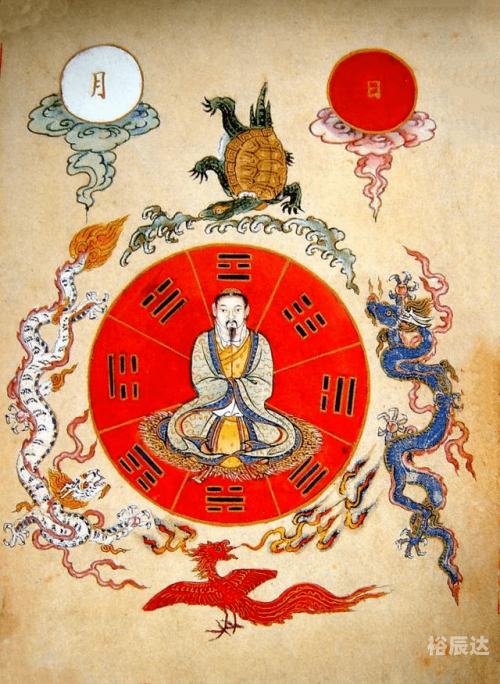 月
日
裕辰达